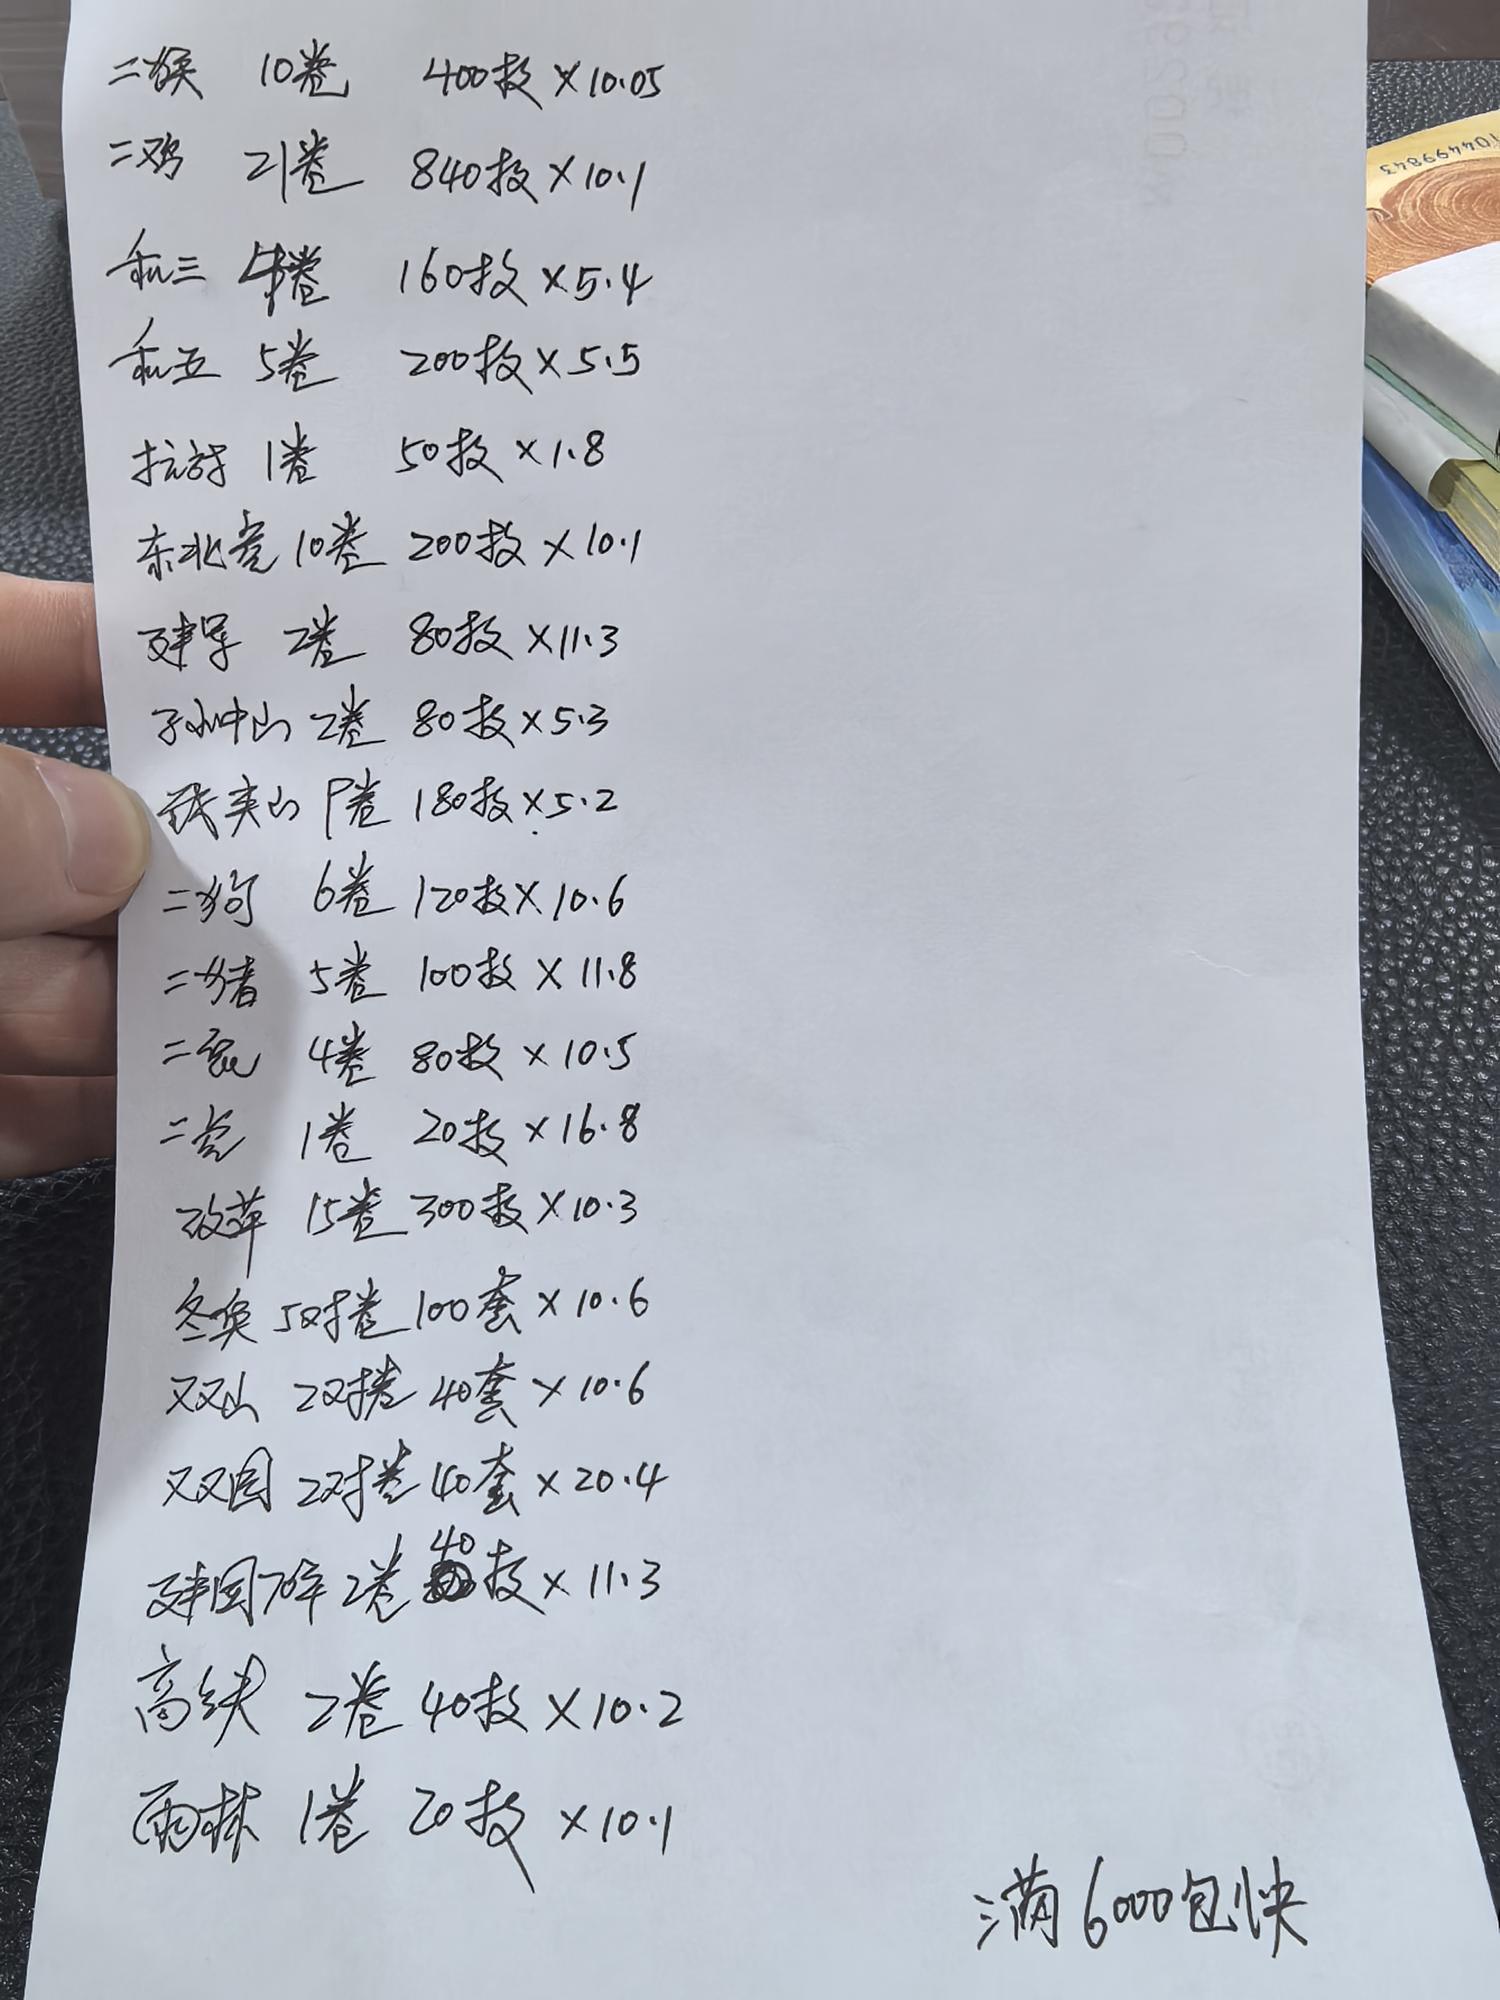 二猴 10卷 400枚×10.05
二鸡 21卷 840枚×10.1
和三 4卷 160枚×5.4
和五 5卷 200枚×5.5
抗战 1卷 50枚×1.8
东北虎 10卷 200枚×10.1
建军 2卷 80枚×11.3
孙中山 2卷 80枚×5.3
武夷山 9卷 180枚×5.2
二狗 6卷 120枚×10.6
二猪 5卷 100枚×11.8
二鼠 4卷 80枚×10.5
二虎 1卷 20枚×16.8
改革 15卷 300枚×10.3
冬奥 5对卷 100套×10.6
双山 2对卷 40套×10.6
双园 2对卷 40套×20.4
建国70年 2卷 40枚×11.3
高铁 2卷 40枚×10.2
雨林 1卷 20枚×10.1
满6000包快